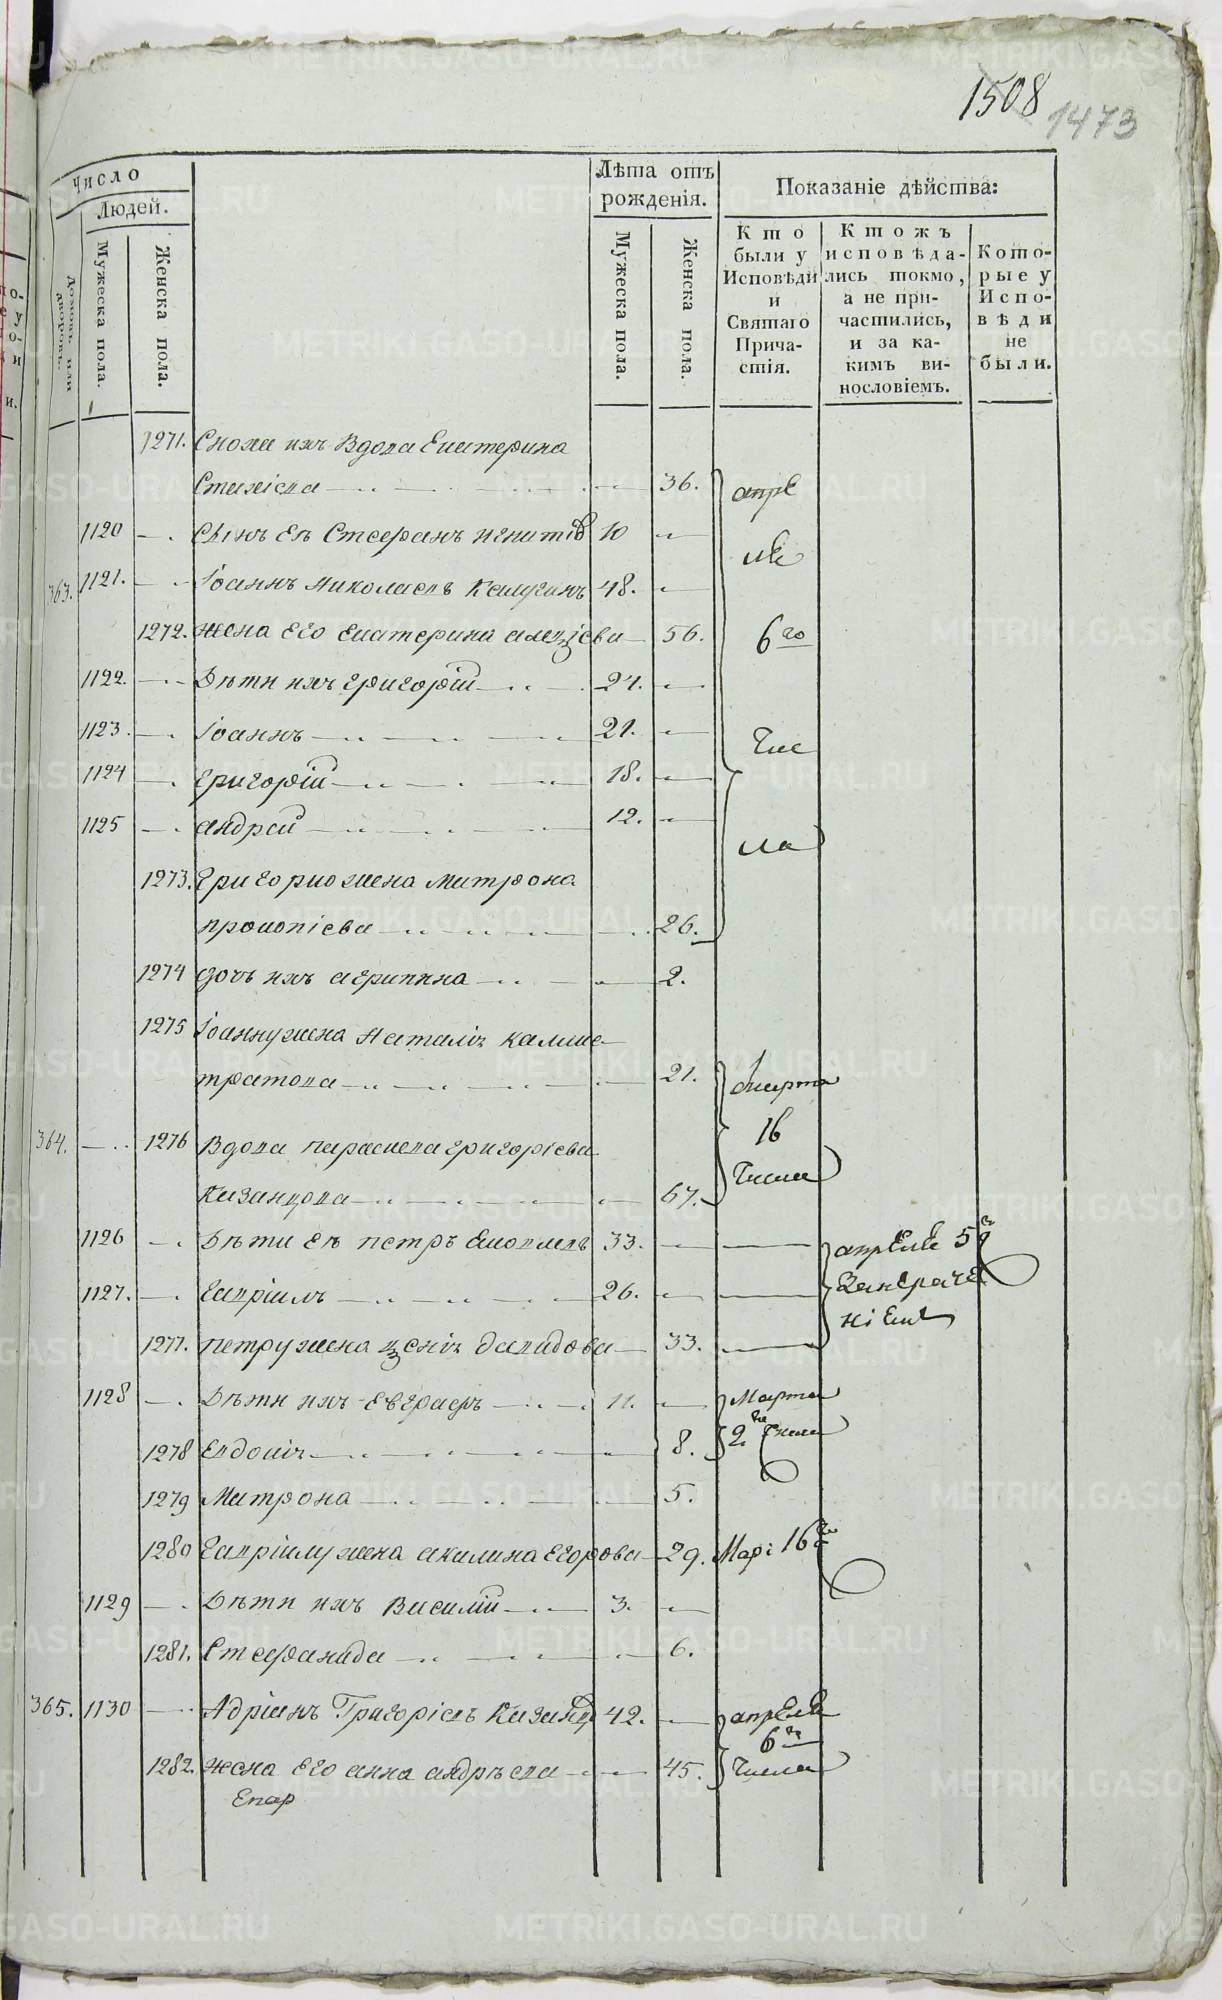 1508
1473
Число
Людей.
Домовъ или дворовъ.
Мужеска пола.
Женска пола.
Лѣта отъ рожденія.
Мужеска пола.
Женска пола.
Показаніе дѣйства:
Кто были у Исповѣди и Святаго Прича-стія.
Ктожъ исповѣда-лись токмо, а не при-частились, и за ка-кимъ ви-нословіемъ.
Кото-рые у Испо-вѣди не были.
1271. Сноха ихъ вдова Екатерина
36. апрѣ
1120 Сынъ Ея Стефанъ 10
лѣ
363. 1121. Іоаннъ Николаевъ Калугинъ 48.
1272. жена Его Екатерина 56. 6го
1122. Дѣти ихъ григорій 24.
1123. Іоаннъ 21. Чис
1124 григорій 18.
1125 андрей 12. ла
1273. григорию жена Матрона
прокопіева 26.
1274 дочь ихъ агрипина 2.
1275 Іоанну жена Наталія калис-
тратова 21. Марта
364. 1276 Вдова параскева григоріева 16
Казанцова 67. Числа
1126 Дѣти Ея петръ 33. апрѣля 5
1127. гавріилъ 26.
1277. петру жена ксенія давидова 33.
1128 Дѣти ихъ Евграфъ 11. Марта
1278 Евдокія 8. 2го Числа
1279 Матрона 5.
1280 гавріилу жена акилина Егорова 29. Мар: 16го
1129 Дѣти ихъ Василій 3.
1281. Стефанида 6.
365. 1130 Адріанъ Григоріевъ Казанцо 42. апрѣля
6го
1282. жена Его анна андрѣева 45. Числа
METRIKI.GASO-URAL.RU